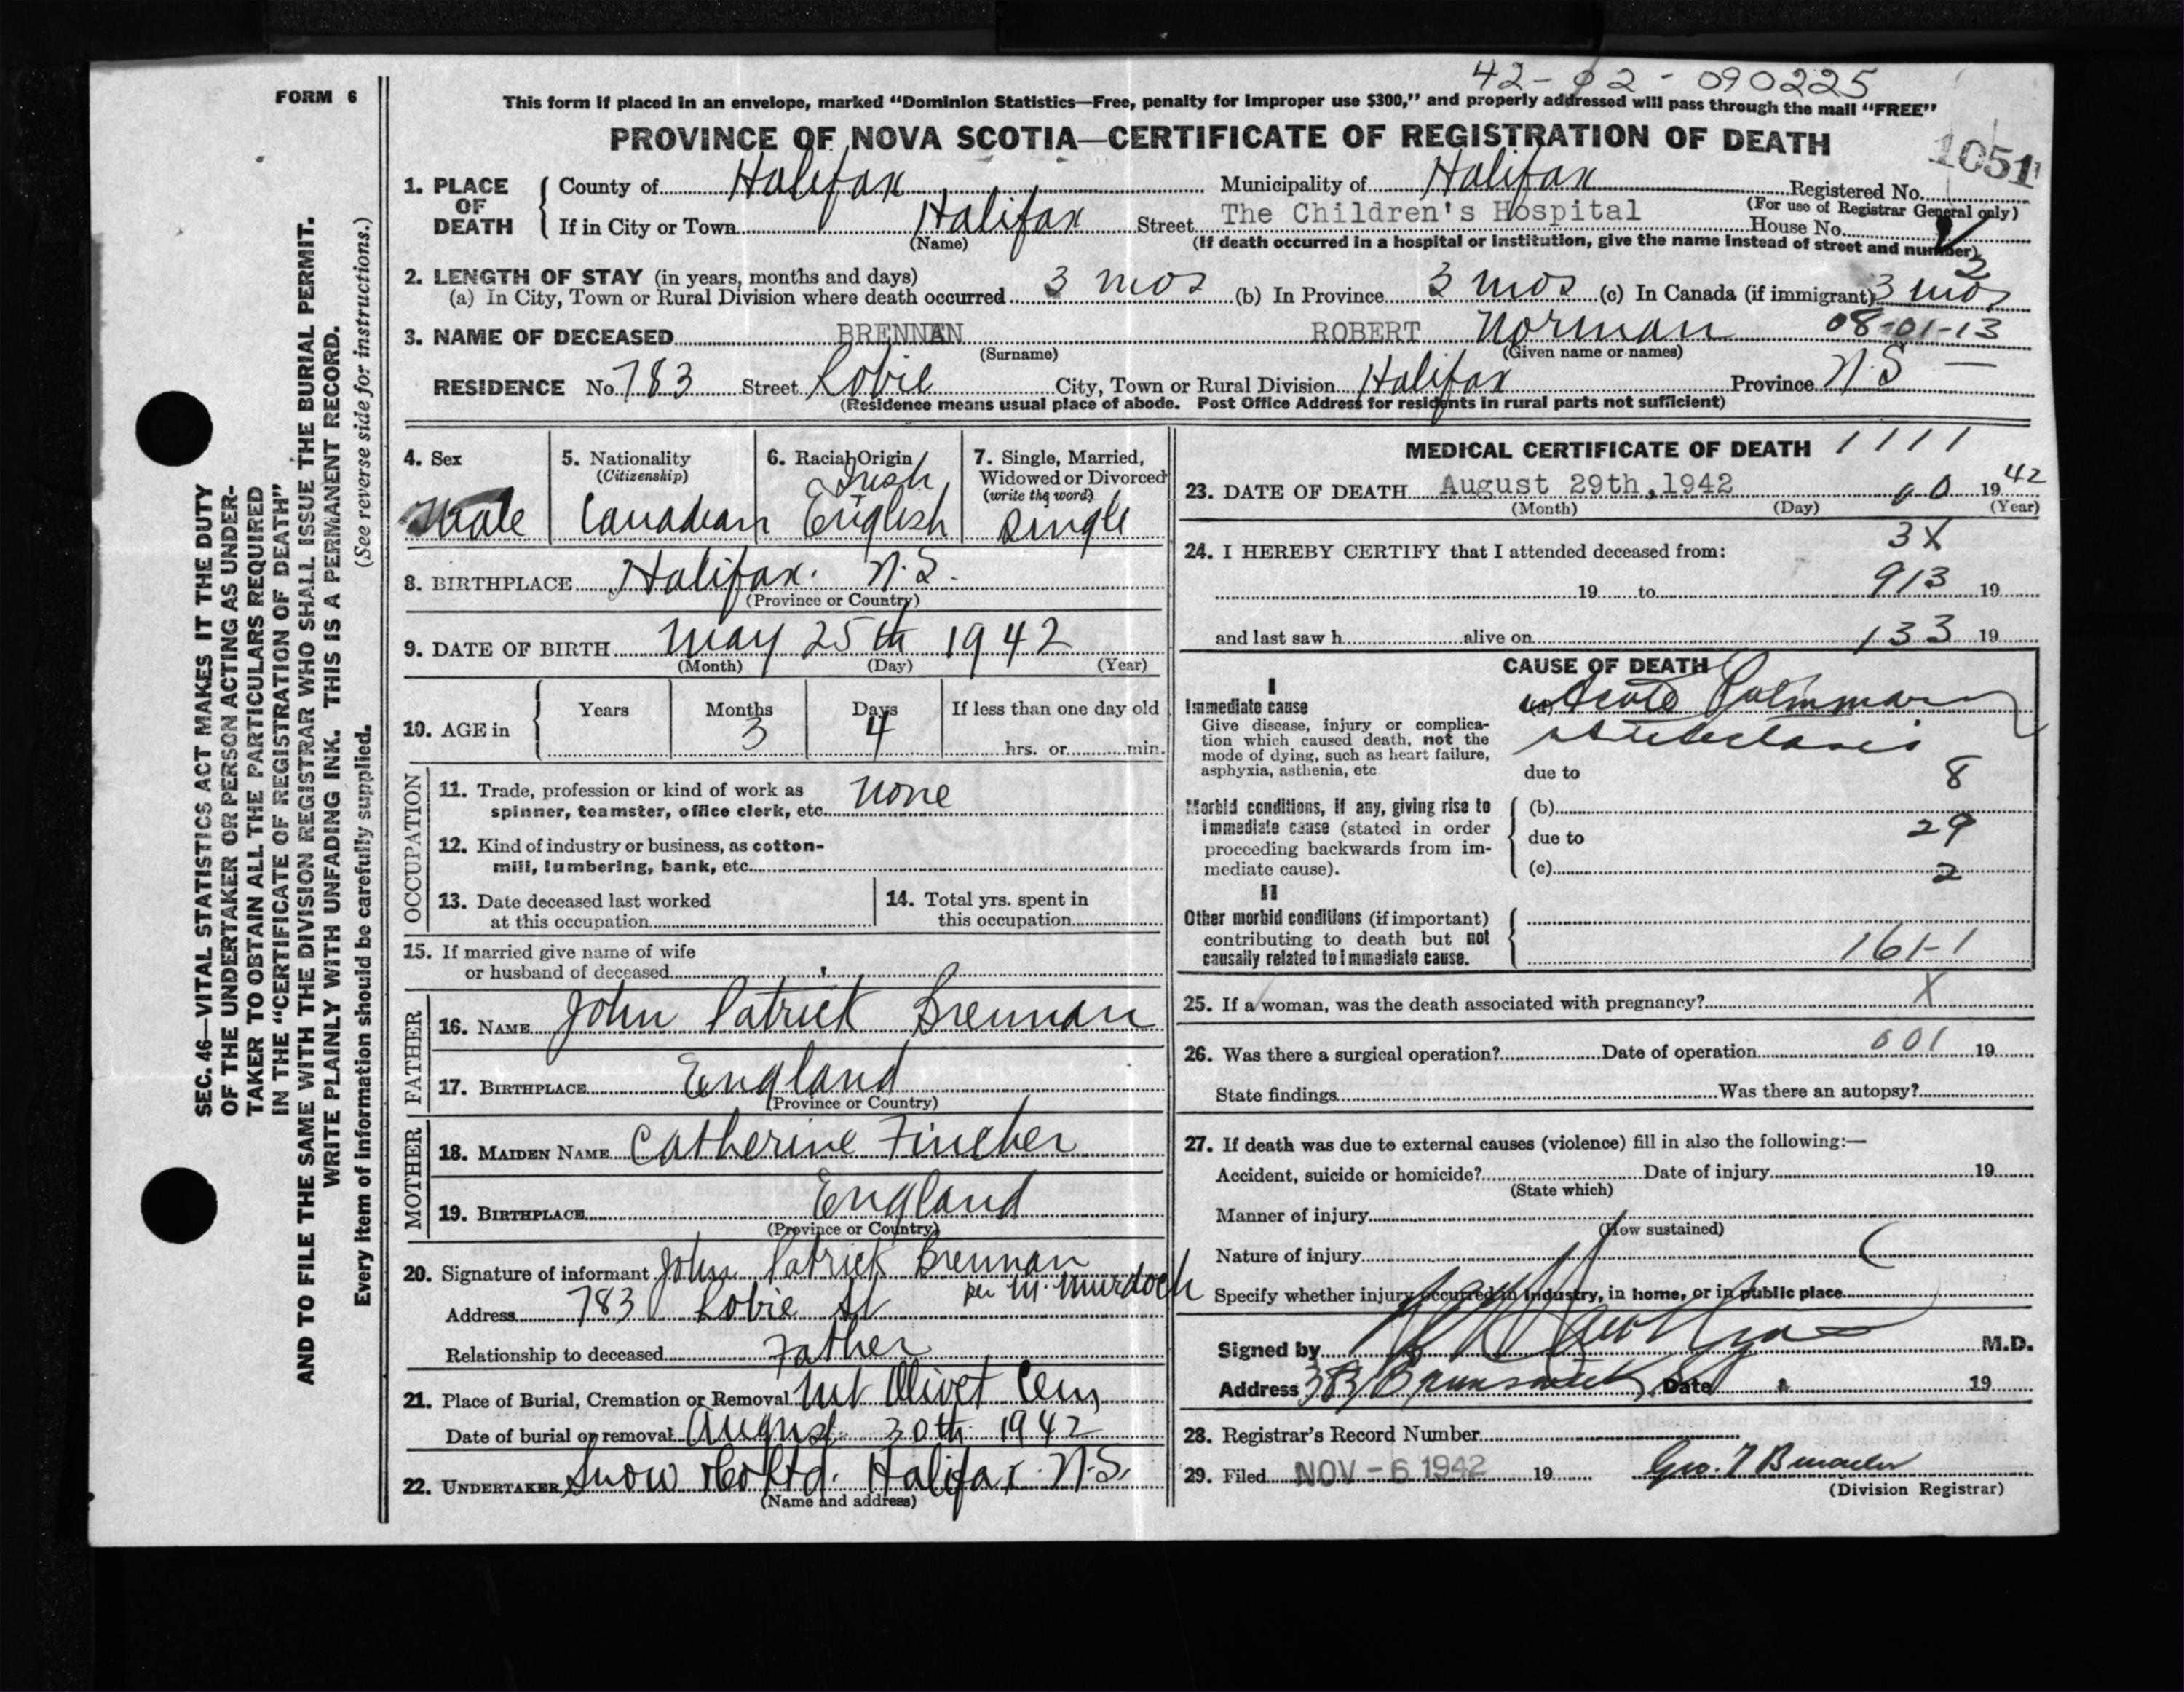 42-02-090225
FORM 6
This form if placed in an envelope, marked "Dominion Statistics—Free, penalty for improper use $300," and properly addressed will pass through the mail "FREE"
PROVINCE OF NOVA SCOTIA—CERTIFICATE OF REGISTRATION OF DEATH
1051
1. PLACE OF DEATH County of Halifax Municipality of Halifax Registered No.
(For use of Registrar General only)
If in City or Town Halifax Street The Children's Hospital House No.
(Name) (If death occurred in a hospital or institution, give the name instead of street and number)
2. LENGTH OF STAY (in years, months and days)
(a) In City, Town or Rural Division where death occurred 3 mos (b) In Province 3 mos (c) In Canada (if immigrant) 3 mos
3. NAME OF DECEASED BRENNAN ROBERT Norman 08-01-13
(Surname) (Given name or names)
RESIDENCE No. 783 Street Robie City, Town or Rural Division Halifax Province N.S
(Residence means usual place of abode. Post Office Address for residents in rural parts not sufficient)
4. Sex
Male
5. Nationality
(Citizenship)
Canadian
6. Racial Origin
Irish
English
7. Single, Married,
Widowed or Divorced
(write the word)
Single
8. BIRTHPLACE Halifax. N.S.
(Province or Country)
9. DATE OF BIRTH May 25th 1942
(Month) (Day) (Year)
10. AGE in Years Months Days If less than one day old
3 4 hrs. or min.
OCCUPATION
11. Trade, profession or kind of work as
spinner, teamster, office clerk, etc. none
12. Kind of industry or business, as cotton-
mill, lumbering, bank, etc.
13. Date deceased last worked
at this occupation
14. Total yrs. spent in
this occupation
15. If married give name of wife
or husband of deceased
FATHER
16. NAME John Patrick Brennan
17. BIRTHPLACE England
(Province or Country)
MOTHER
18. MAIDEN NAME Catherine Fincher
19. BIRTHPLACE England
(Province or Country)
20. Signature of informant John Patrick Brennan
per M. Murdoch
Address 783 Robie St
Relationship to deceased Father
21. Place of Burial, Cremation or Removal Mt Olivet Cem,
Date of burial or removal August 30th 1942
22. UNDERTAKER Snow & Co Ltd. Halifax N.S.
(Name and address)
MEDICAL CERTIFICATE OF DEATH 1111
23. DATE OF DEATH August 29th, 1942 1942
(Month) (Day) (Year)
24. I HEREBY CERTIFY that I attended deceased from: 3X
19 to 913 19
and last saw h alive on 133 19
CAUSE OF DEATH
I
Immediate cause
Give disease, injury or complica-
tion which caused death, not the
mode of dying, such as heart failure,
asphyxia, asthenia, etc
(a) Acute Pulmonary
Atelectasis
due to 8
Morbid conditions, if any, giving rise to
immediate cause (stated in order
proceeding backwards from im-
mediate cause).
(b)
due to 29
(c) 2
II
Other morbid conditions (if important)
contributing to death but not
causally related to immediate cause.
161-1
25. If a woman, was the death associated with pregnancy? X
26. Was there a surgical operation? Date of operation 001 19
State findings Was there an autopsy?
27. If death was due to external causes (violence) fill in also the following:—
Accident, suicide or homicide? Date of injury 19
(State which)
Manner of injury
(How sustained)
Nature of injury
Specify whether injury occurred in industry, in home, or in public place
Signed by M.D.
Address 383 Brunswick St Date 19
28. Registrar's Record Number
29. Filed NOV - 6 1942 19 Geo. 
(Division Registrar)
SEC. 46—VITAL STATISTICS ACT MAKES IT THE DUTY
OF THE UNDERTAKER OR PERSON ACTING AS UNDER-
TAKER TO OBTAIN ALL THE PARTICULARS REQUIRED
IN THE "CERTIFICATE OF REGISTRATION OF DEATH"
AND TO FILE THE SAME WITH THE DIVISION REGISTRAR WHO SHALL ISSUE THE BURIAL PERMIT.
WRITE PLAINLY WITH UNFADING INK. THIS IS A PERMANENT RECORD.
Every item of information should be carefully supplied. (See reverse side for instructions.)